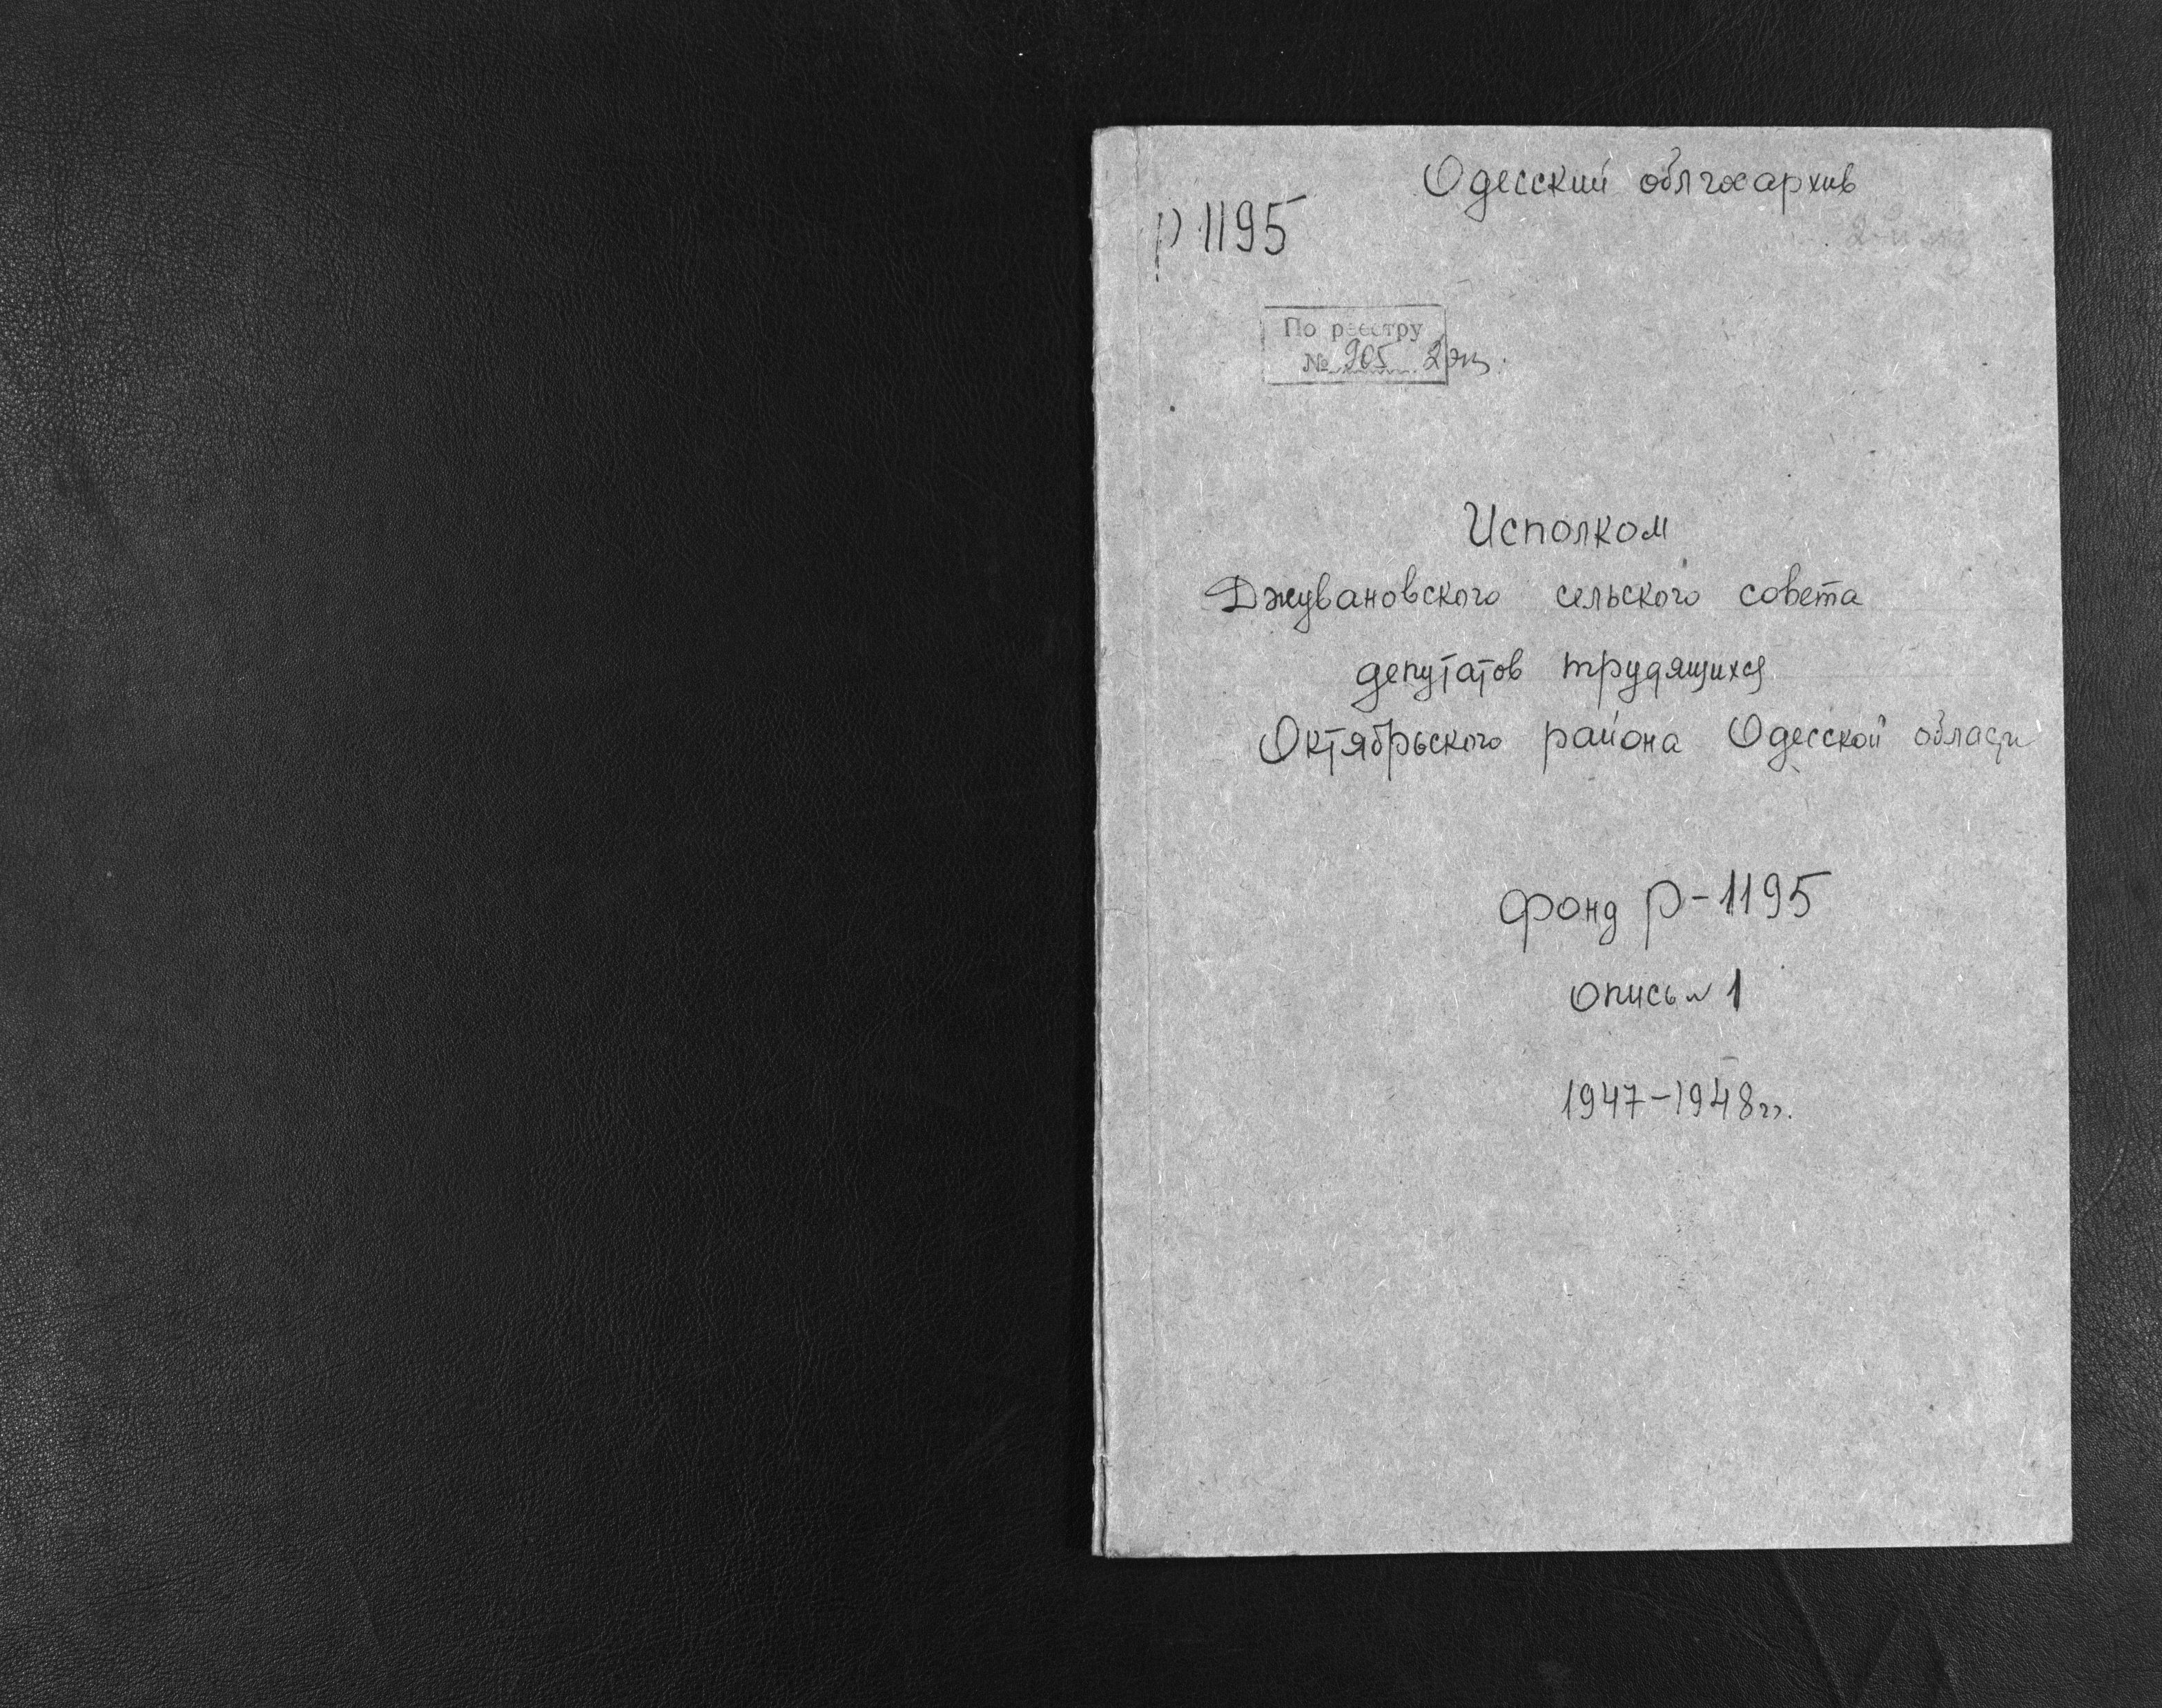 Одесский облгосархив
р 1195
По реестру
№ 905 2 экз.
Исполком
Джувановского сельского совета
депутатов трудящихся
Октябрьского района Одесской области
Фонд р-1195
опись № 1
1947-1948 гг.